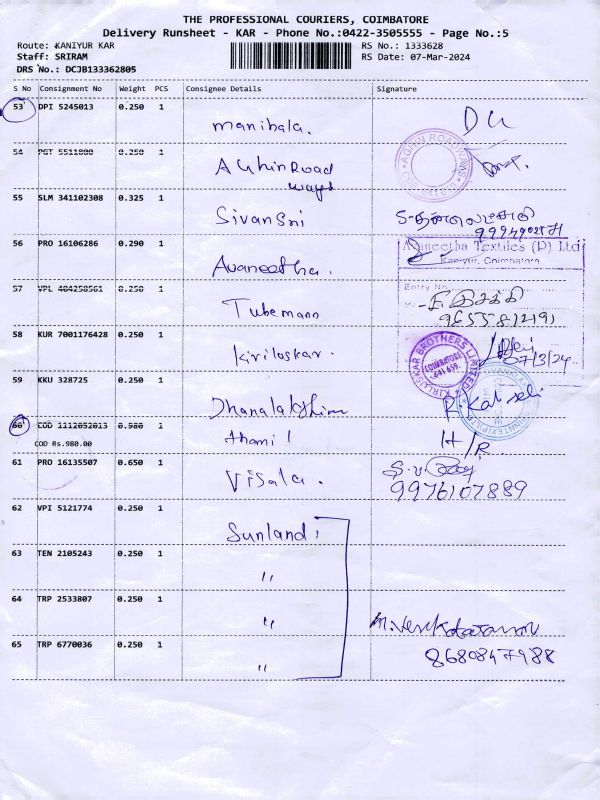 THE PROFESSIONAL COURIERS, COIMBATORE
Delivery Runsheet - KAR - Phone No.:0422-3505555 - Page No.:5
Route: KANIYUR KAR
RS No.: 1333628
Staff: SRIRAM
RS Date: 07-Mar-2024
DRS No.: DCJB133362805
S No Consignment No Weight PCS Consignee Details Signature
53 DPI 5245013 0.250 1
manibala.
54 PGT 5511800 0.250 1
Aghin Road ways
AGHIN ROADWAYS
55 SLM 341102308 0.325 1
SivanSri
56 PRO 16106286 0.290 1
Avaneetha.
Avaneetha Textiles (P) Ltd
Kaniyur, Coimbatore
57 VPL 404258561 0.250 1
Tubemann
Entry No
9655812191
58 KUR 7001176428 0.250 1
Kirloskar.
KIRLOSKAR BROTHERS LIMITED
COIMBATORE
641 659
07/3/24
59 KKU 328725 0.250 1
Dhanalakshmi
60 COD 1112052013 0.980 1
COD Rs.980.00
thamil
H/R
61 PRO 16135507 0.650 1
Visala.
9976107889
62 VPI 5121774 0.250 1
Sunland
63 TEN 2105243 0.250 1
"
64 TRP 2533807 0.250 1
"
M. Venkataraman
65 TRP 6770036 0.250 1
"
8680847988